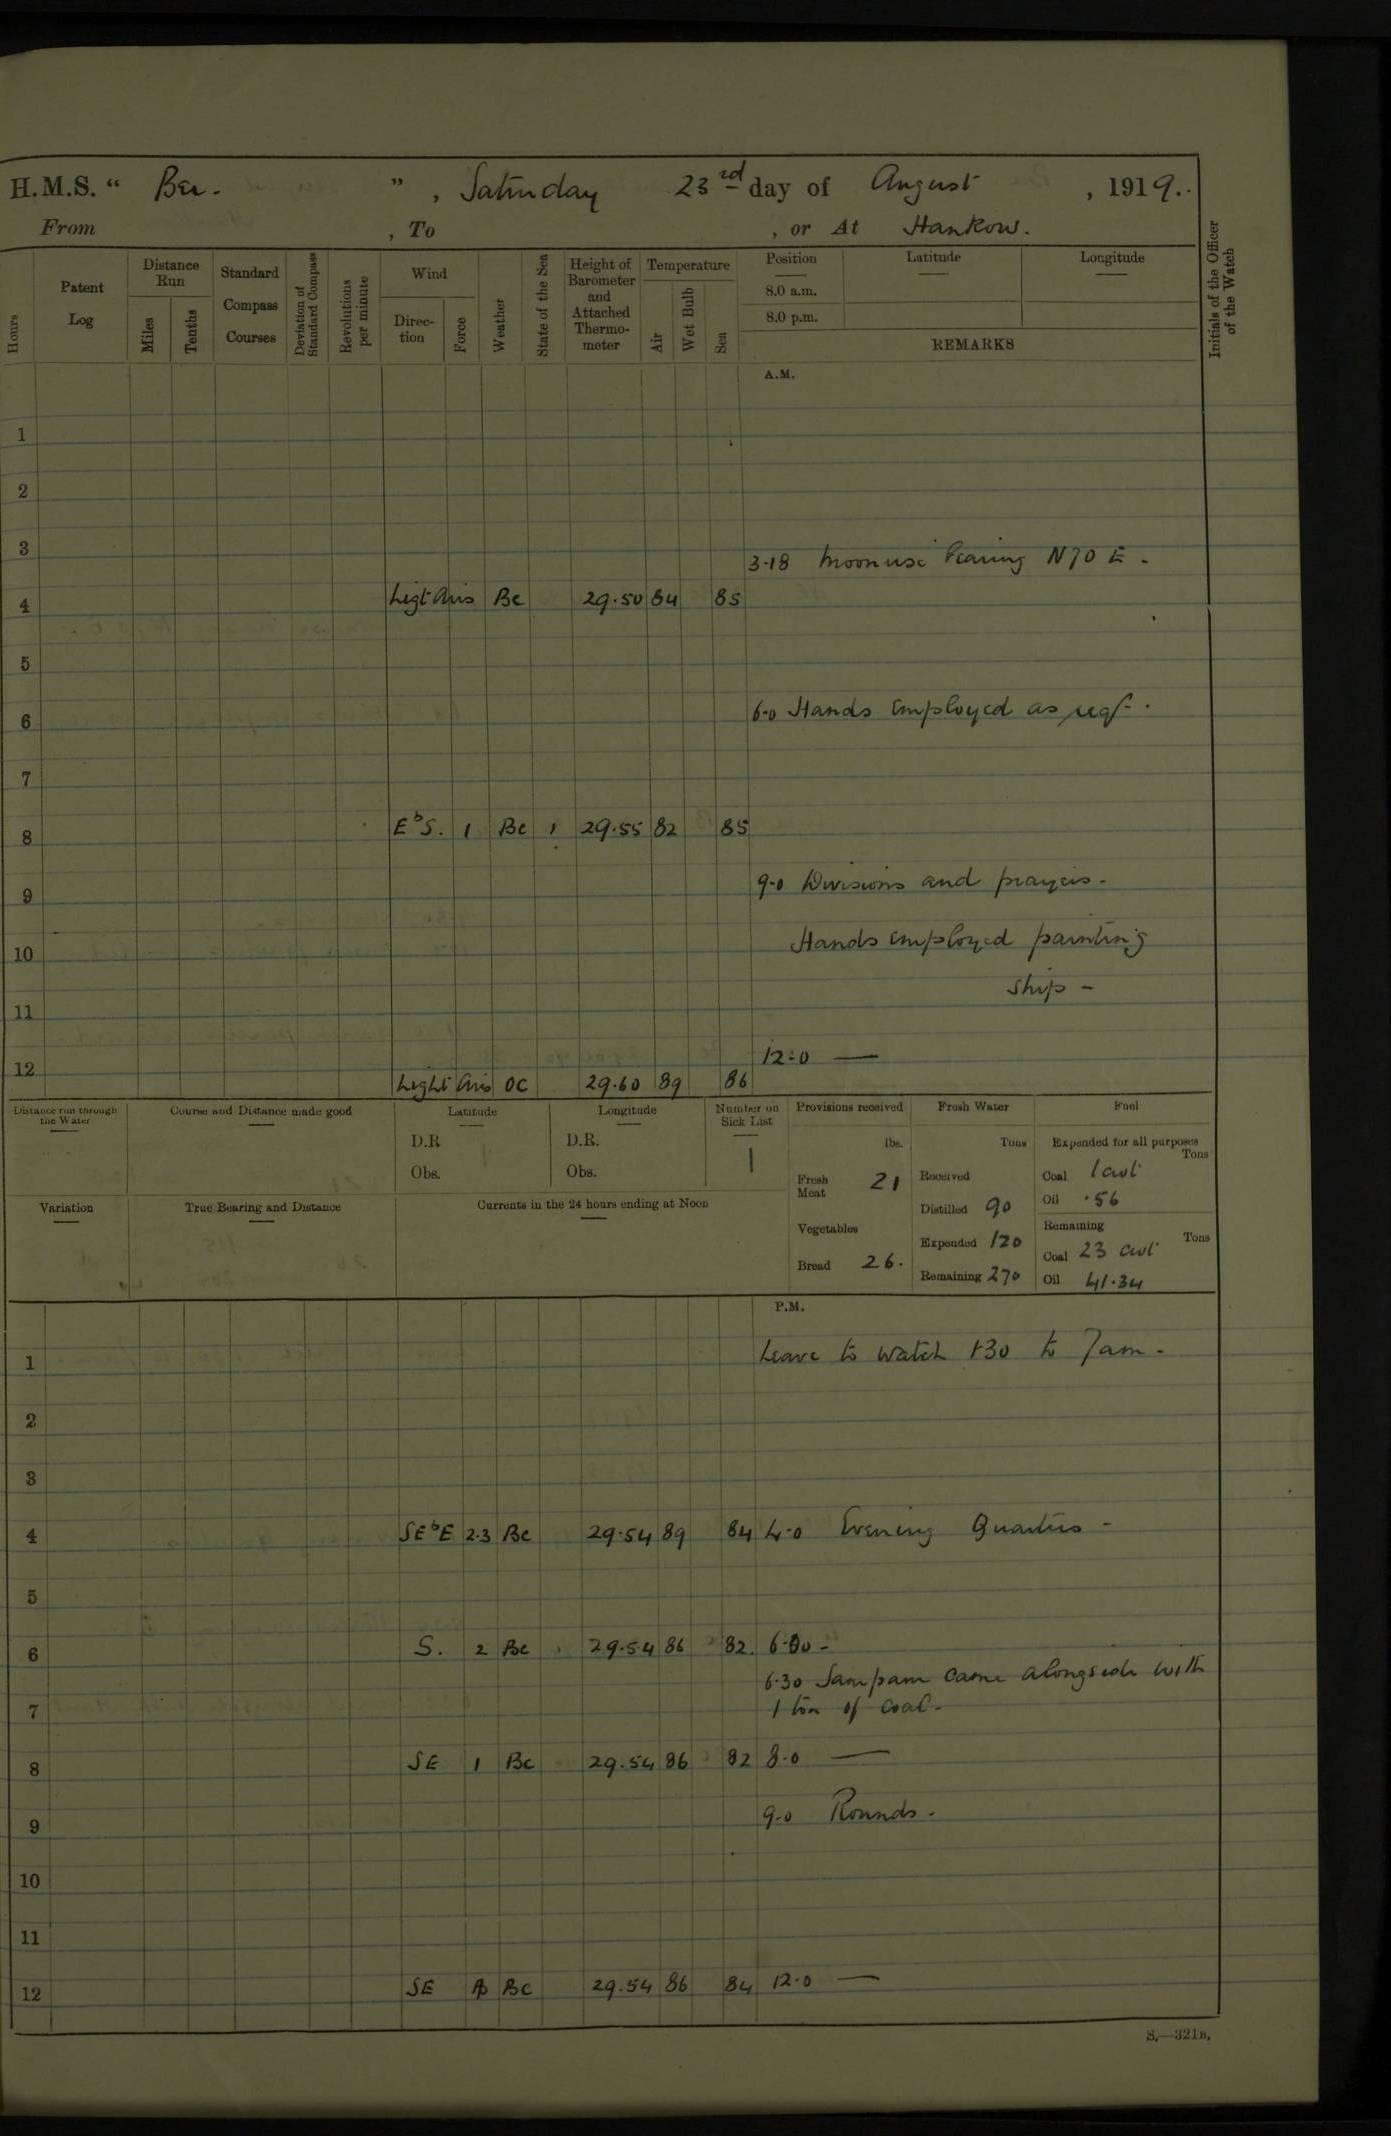 H.M.S. " Bee. ", Saturday 23rd day of August, 1919.
From , To , or At Hankow.
Hours
Patent Log
Distance Run
Miles
Tenths
Standard Compass Courses
Deviation of Standard Compass
Revolutions per minute
Wind
Direc-tion
Force
Weather
State of the Sea
Height of Barometer and Attached Thermo-meter
Temperature
Air
Wet Bulb
Sea
Position
8.0 a.m.
8.0 p.m.
Latitude
Longitude
REMARKS
Initials of the Officer of the Watch
A.M.
1
2
3
3.18 Moonrise bearing N70E.
4 Light Airs Bc 29.50 84 85
5
6 6.0 Hands employed as req.
7
8 EbS. 1 Bc 1 29.55 82 85
9 9.0 Divisions and prayers.
10 Hands employed painting
ship -
11
12.0 —
12 Light Airs OC 29.60 89 86
Distance run through the Water
Course and Distance made good
Latitude
D.R
Obs.
Longitude
D.R.
Obs.
Number on Sick List
1
Provisions received
lbs.
Fresh Meat 21
Vegetables
Bread 26.
Fresh Water
Tons
Received
Distilled 90
Expended 120
Remaining 270
Fuel
Expended for all purposes
Tons
Coal 1 cwt
Oil .56
Remaining
Tons
Coal 23 cwt
Oil 41.34
Variation
True Bearing and Distance
Currents in the 24 hours ending at Noon
P.M.
1 Leave to watch 1.30 to 7am.
2
3
4 SEbE 2.3 Bc 29.54 89 84 4.0 Evening Quarters -
5
6 S. 2 Bc 29.54 86 82. 6.00 -
6.30 Sampam came alongside with
7 1 ton of coal -
8 SE 1 Bc 29.54 86 82 8.0 —
9 9.0 Rounds -
10
11
12 SE Bc 29.54 86 84 12.0 —
S.—321B.